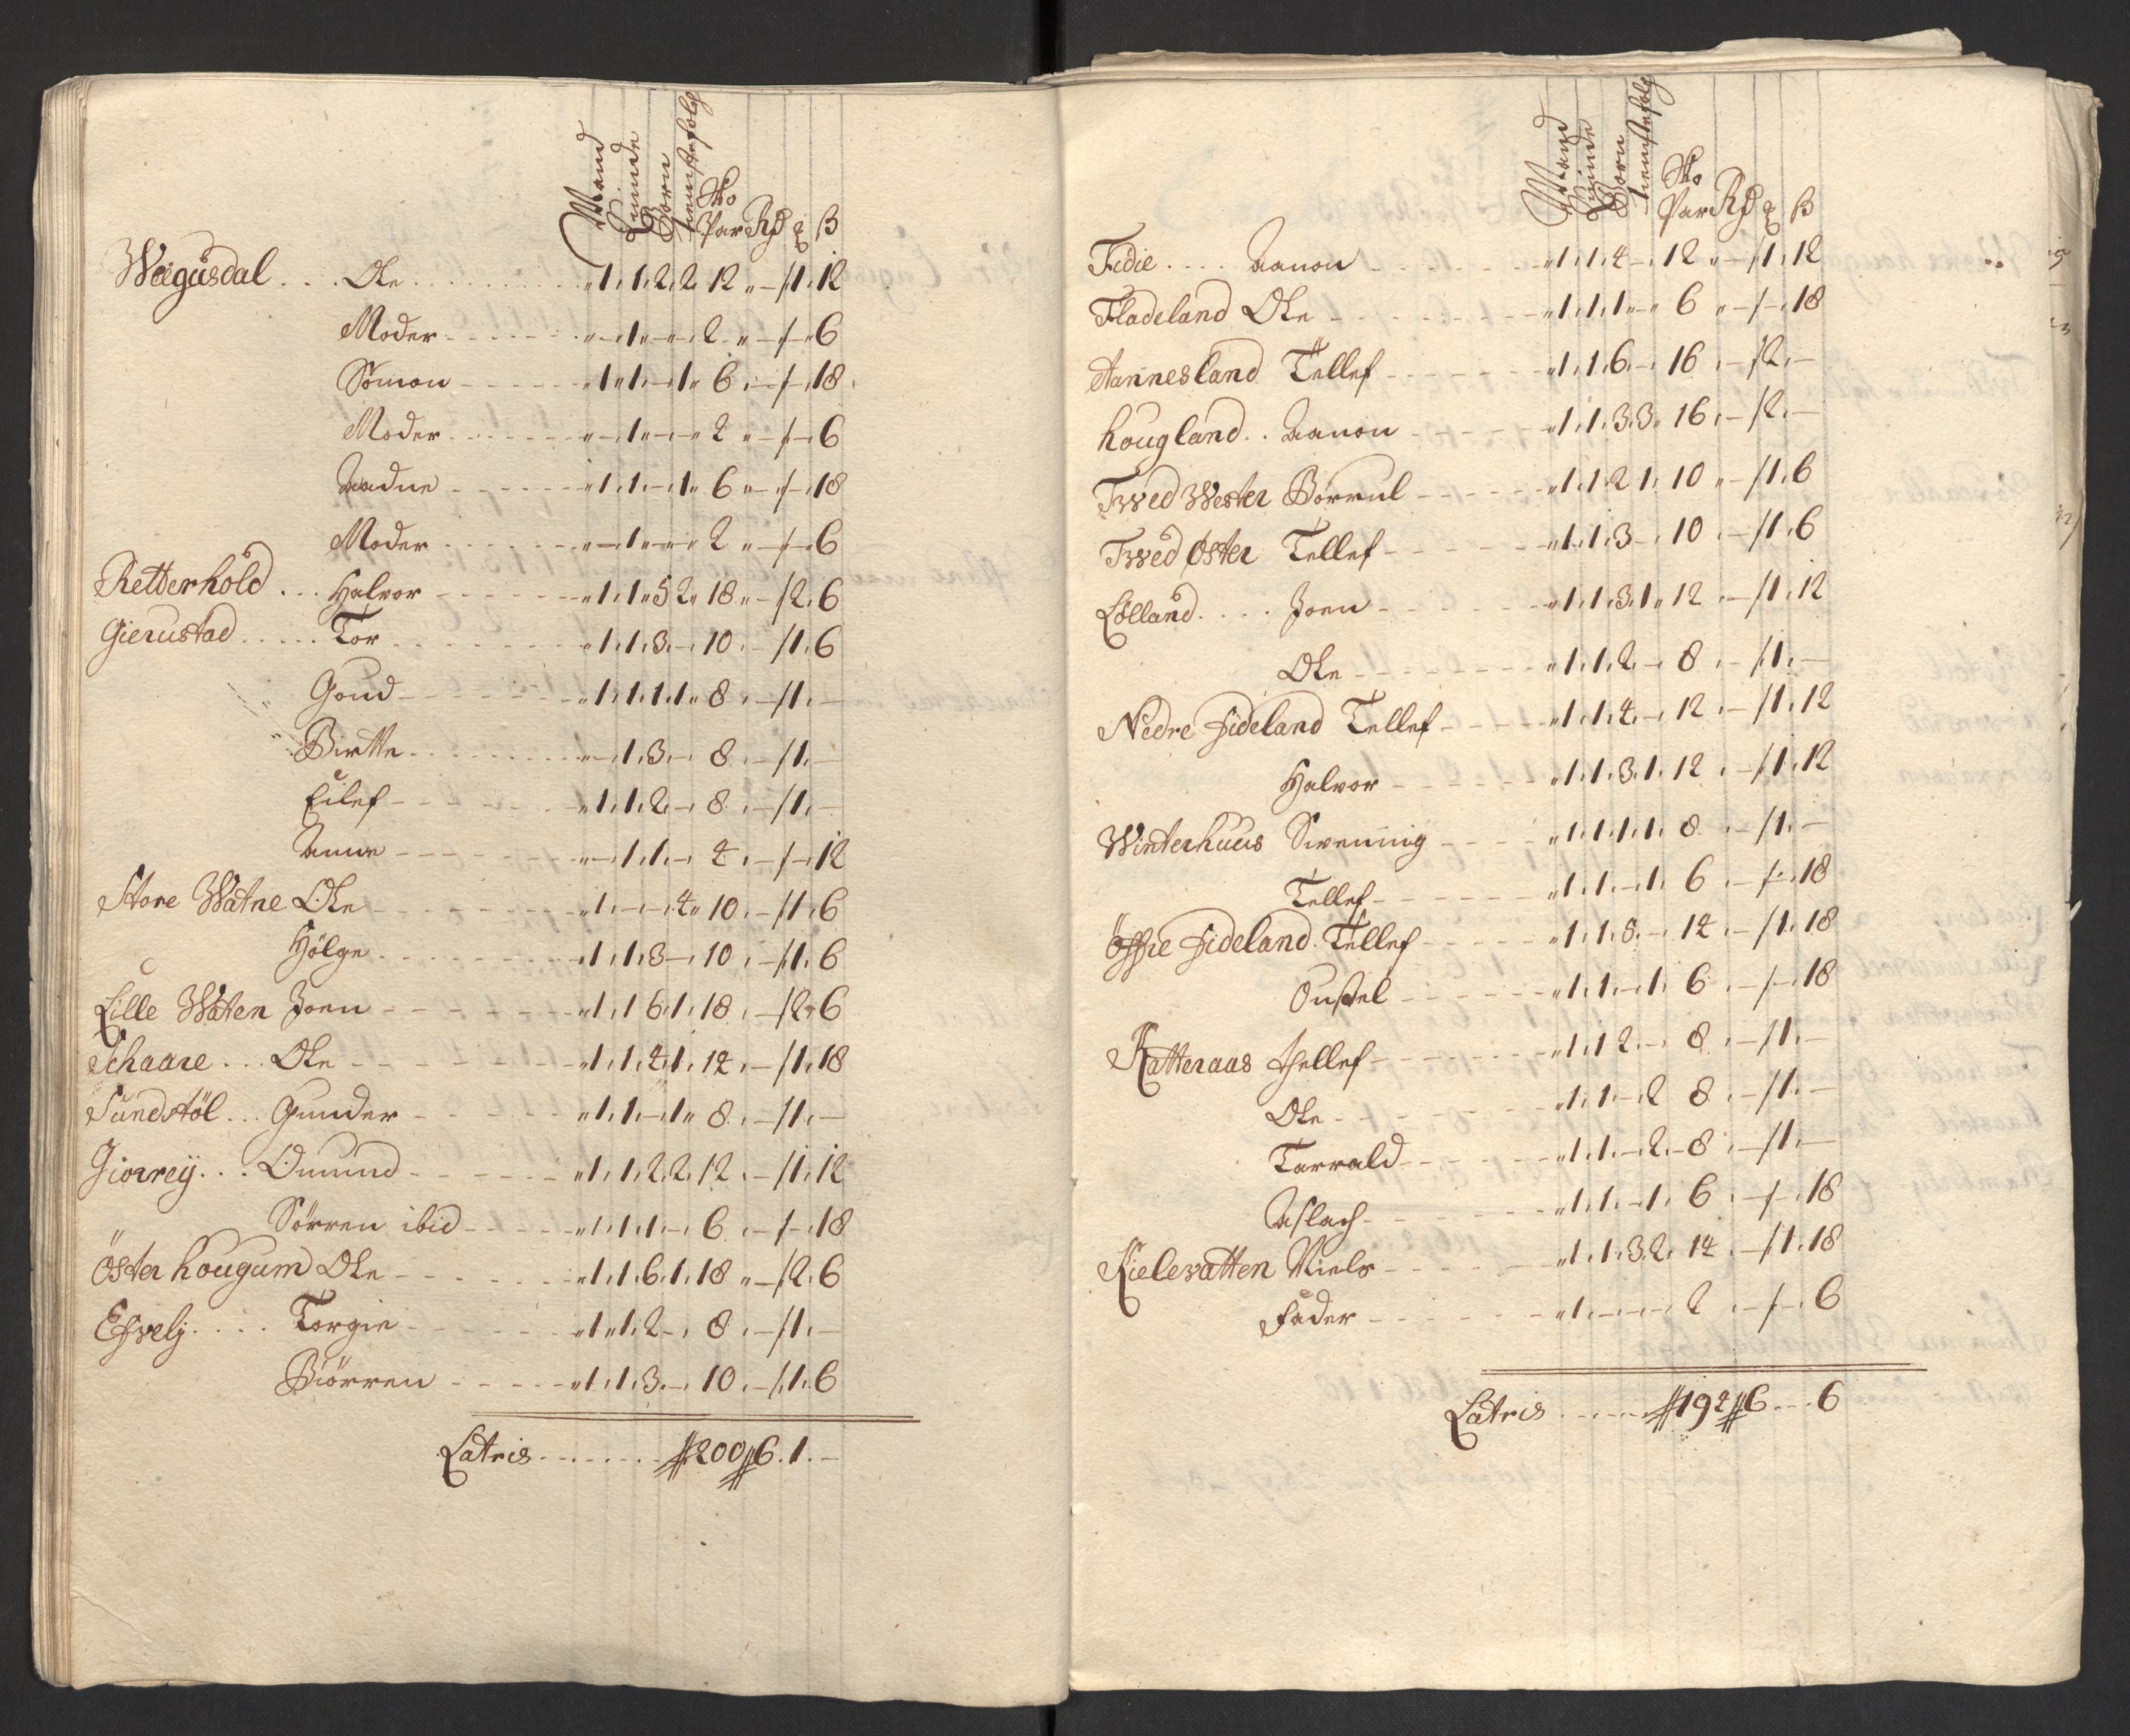 Mand Quinde Börn Tienstefolch Sko Par Rd ß
Weigusdal . . . Ole . . . 1 1 2 2 12 „ — 1 12
Moder . . . „ 1 „ „ 2 „ — — 6
Sömon . . . 1 1 — 1 6 — — 18
Moder . . . „ 1 „ „ 2 „ — — 6
Aadne . . . 1 1 — 1 6 „ — — 18
Moder . . . „ 1 „ „ 2 „ — — 6
Retterhold . . . Halvor . . . 1 1 5 2 18 „ — 2 6
Gierustad . . . Tor . . . 1 1 3 — 10 — 1 6
Goud . . . 1 1 1 1 8 — 1 —
Birtte . . . — 1 3 — 8 — 1 —
Eilef . . . 1 1 2 — 8 — 1 —
Anne . . . — 1 1 — 4 — — 12
Store Watne Ole . . . 1 — — 4 10 — 1 6
Hölge . . . 1 1 3 — 10 — 1 6
Lille Waten Joen . . . 1 1 6 1 18 — 2 6
Schaare . . . Ole . . . 1 1 4 1 14 — 1 18
Sundstöl . . . Gunder . . . 1 1 — 1 8 — 1 —
Giovreÿ . . . Omund . . . 1 1 2 2 12 — 1 12
Sörren ibid . . . 1 1 1 — 6 — — 18
Öster hougum Ole . . . 1 1 6 1 18 „ — 2 6
Efvelj . . . Torgie . . . 1 1 2 — 8 — 1 —
Biörren . . . 1 1 3 — 10 — 1 6
Latris . . . 200 6 1 —
Mand Quinde Börn Tienstefolch Sko Par Rd ß
Fidie . . . Aanon . . . 1 1 4 — 12 „ — 1 12
Fladeland Ole . . . 1 1 1 „ 6 „ — — 18
Aannesland Tellef . . . 1 1 6 — 16 — 2 —
hougland . . Aanon . . . 1 1 3 3 16 — 2 —
Tved Wester Börrul . . . 1 1 2 1 10 „ — 1 6
Tved Øster Tellef . . . 1 1 3 — 10 — 1 6
Lölland . . . Joen . . . 1 1 3 1 12 — 1 12
Ole . . . 1 1 2 — 8 — 1 —
Nedre Fideland Tellef . . . 1 1 4 — 12 — 1 12
Halvor . . . 1 1 3 1 12 — 1 12
Winterhuus Swenning . . . 1 1 1 1 8 — 1 —
Tellef . . . 1 1 — 1 6 — — 18
Öffre Fideland Tellef . . . 1 1 5 — 14 — 1 18
Oustel . . . 1 1 — 1 6 — — 18
Katteraas Thellef . . . 1 1 2 — 8 — 1 —
Ole . . . 1 1 — 2 8 — 1 —
Tarrald . . . 1 1 — 2 8 — 1 —
Aslach . . . 1 1 — 1 6 — — 18
Kielevatten Niels . . . 1 1 3 2 14 — 1 18
Fader . . . 1 — — — 2 — — 6
Latris . . . 194 6 — 6